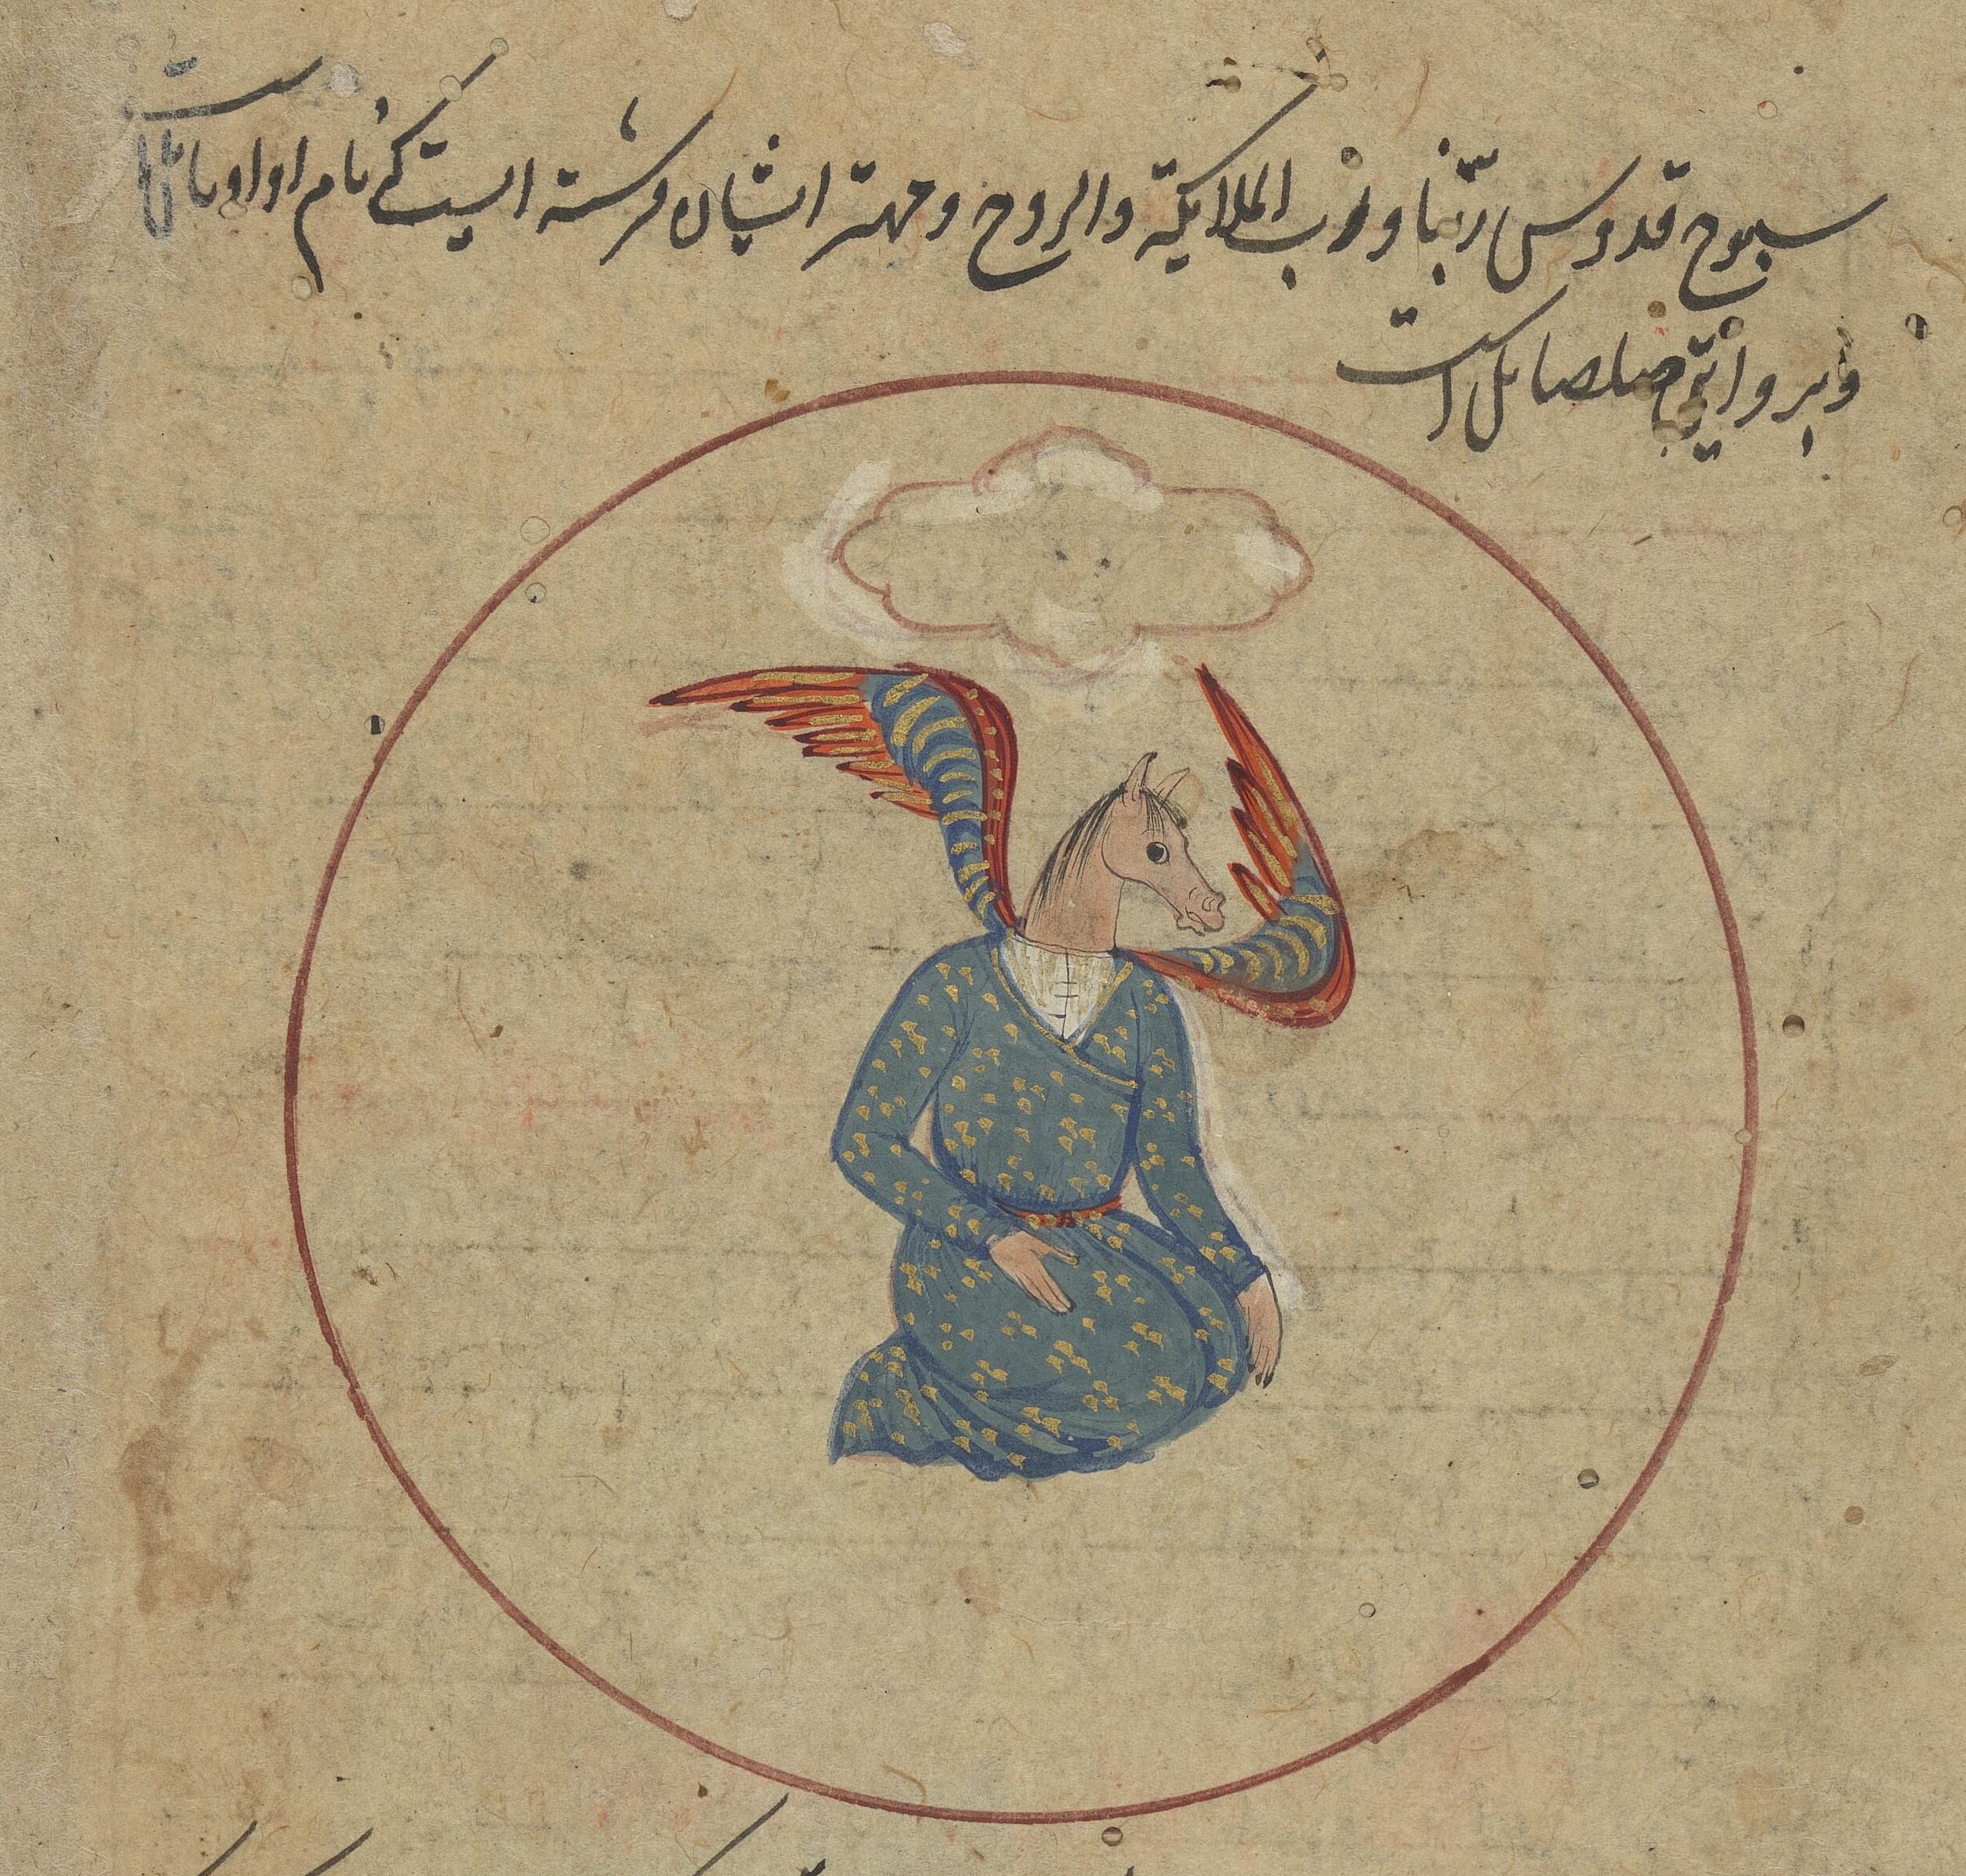 سبوح قدوس ربّنا و رب الملایکة والروح و مهتر ایشان فرشته ایست که نام او اویاىل است
و بروایتی صلصایل است